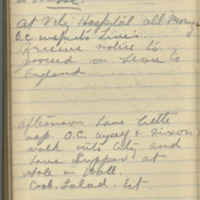 At Vety Hospital all Morng
O.C. inspects Lines.
Receive notice to
proceed on Leave to
England
Afternoon have little
nap. O.C. myself & Dixon
walk into City and
have Supper at
Hole in Wall.
Crab. Salad. Ect.